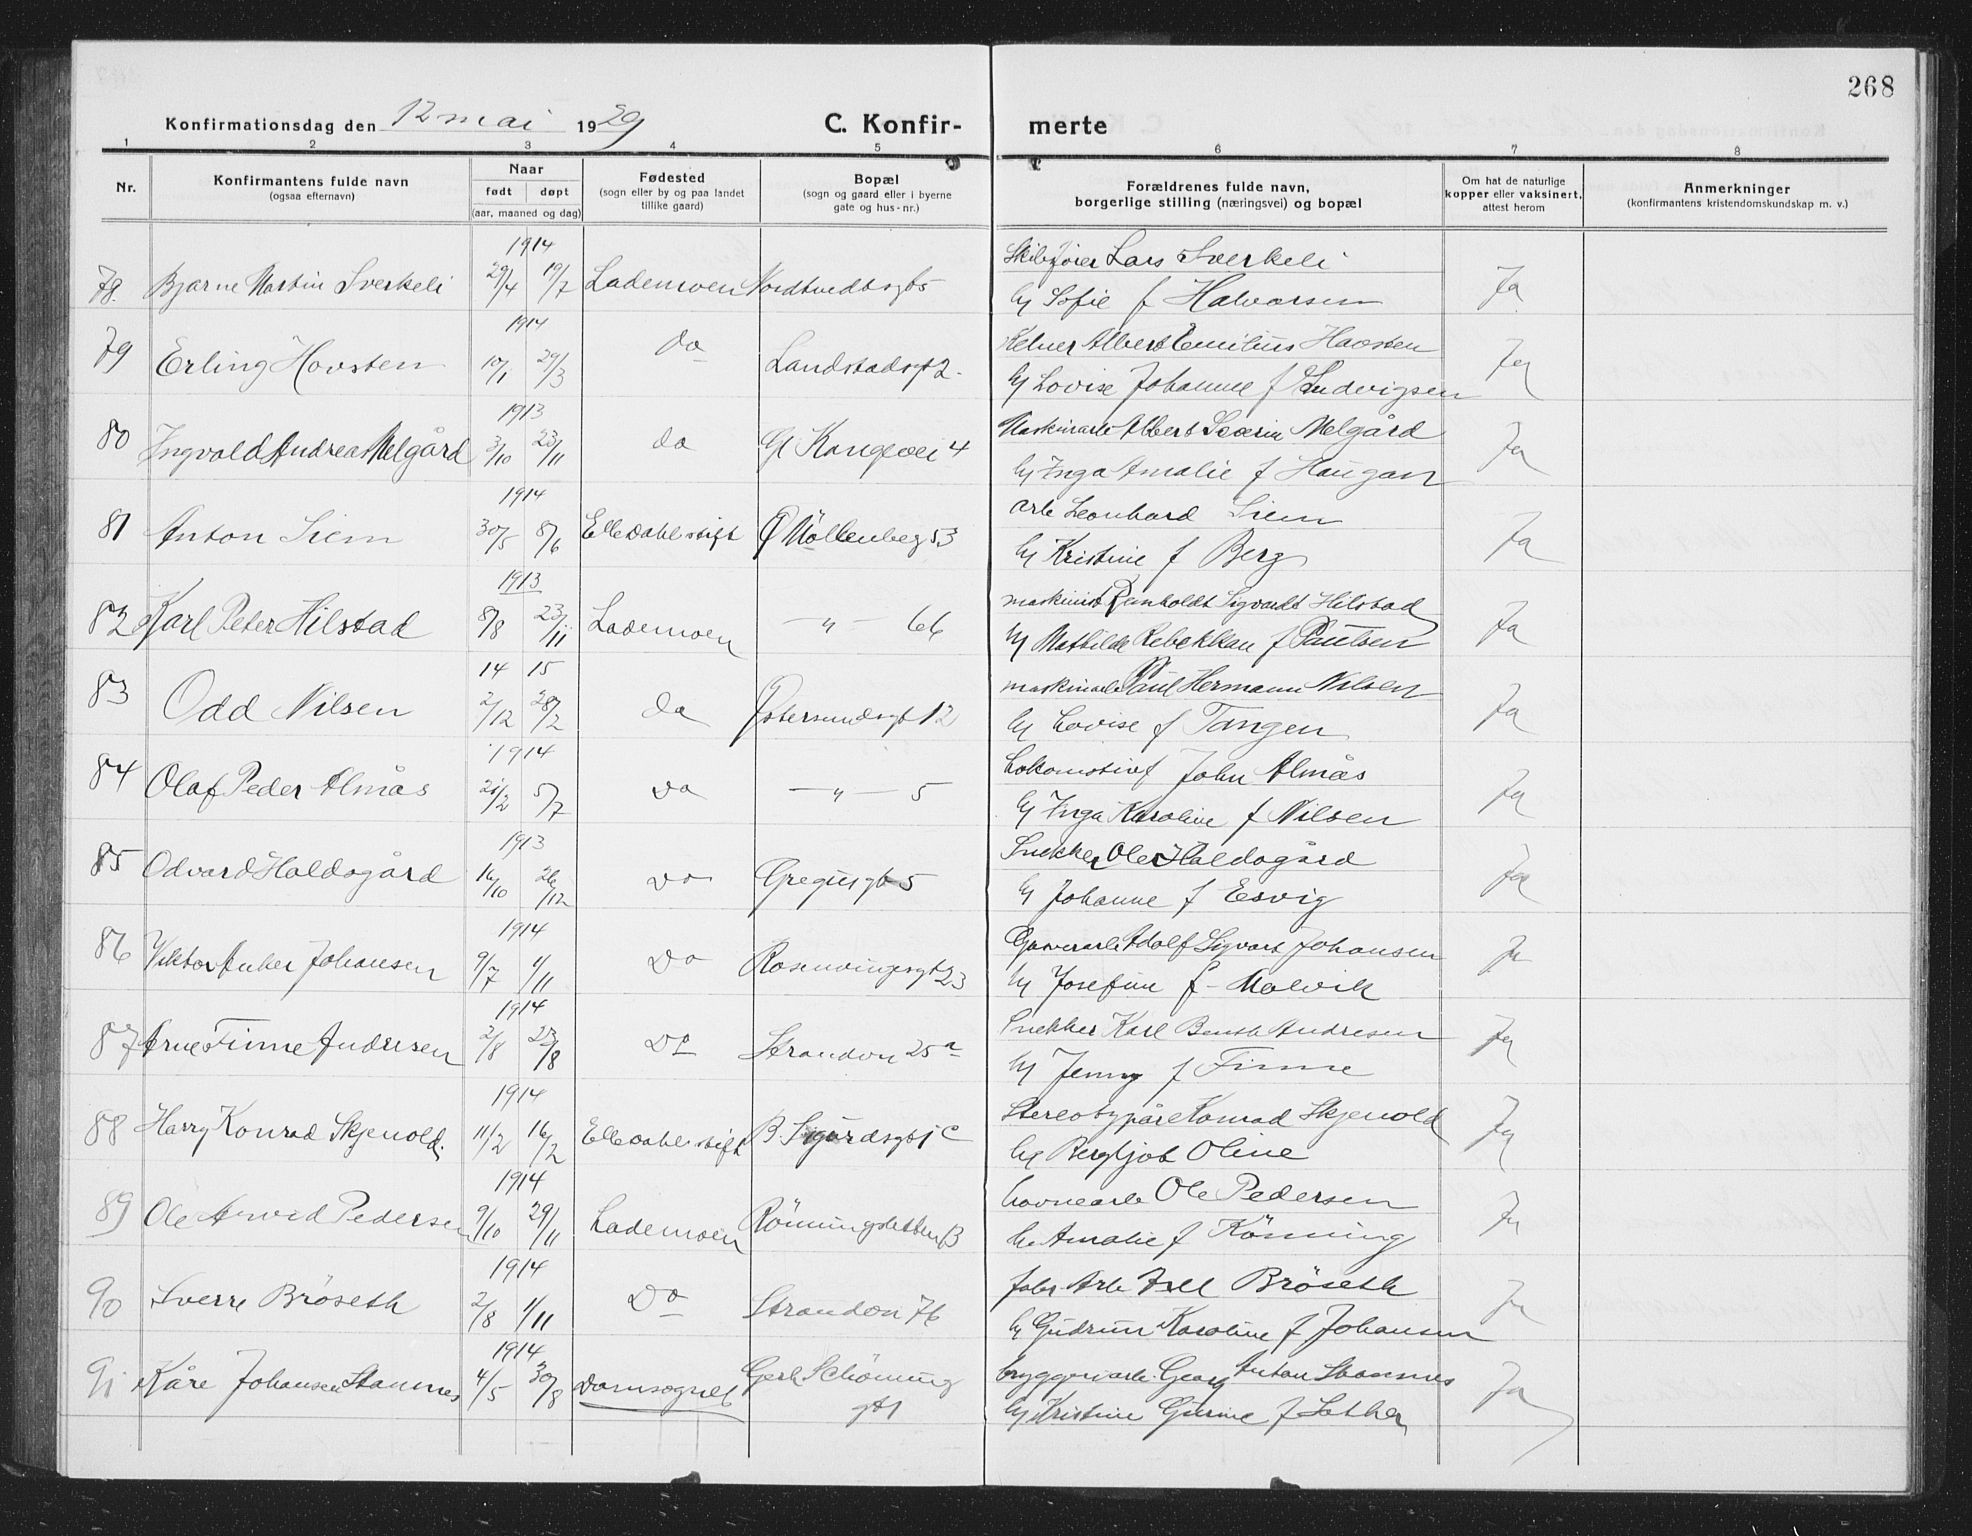 268
Konfirmationsdag den 12 mai 1929
C. Konfir-
merte
1 2 3 4 5 6 7 8
Nr.
Konfirmantens fulde navn
(ogsaa efternavn)
Naar
født døpt
(aar, maaned og dag)
Fødested
(sogn eller by og paa landet
tillike gaard)
Bopæl
(sogn og gaard eller i byerne
gate og hus-nr.)
Forældrenes fulde navn,
borgerlige stilling (næringsvei) og bopæl
Om hat de naturlige
kopper eller vaksinert,
attest herom
Anmerkninger
(konfirmantens kristendomskundskap m. v.)
1914
78. Bjarne Martin Sverkeli 29/4 19/7 Lademoen Nordtvedtsgt 5 Skibsfører Lars Sverkeli Ja
Sofie f Halvorsen
1914
79 Erling Hovsten 10/1 29/3 do Landstadsgt 2. Kelner Albert Emilius Havsten Ja
Lovise Johanne f Ludvigsen
1913
80 Ingvald Andreas Melgård 3/10 23/11 do Gl Kongevei 4 Maskinarb Albert Severin Melgård Ja
Inga Amalie f Haugan
1914
81 Anton Siem 30/5 8/6 E C Dahl stift Ø Möllenberg 53 Arb Leonhard Siem Ja
Kristine f Berg
1913
82 Karl Peter Hilstad 8/8 23/11 Lademoen — " — 66 maskinist Reinholdt Sigvardt Hilstad Ja
Mathilde Rebekka f Paulsen
14 15
83 Odd Nilsen 2/12 28/2 do Østersundsgt 12 maskinarb Paul Hermann Nilsen Ja
Lovise f Tangen
1914
84 Olaf Peder Almås 21/2 5/7 Do — " — 5 Lokomotivf John Almås Ja
Inga Karoline f Nilsen
1913
85 Odvard Haldogård 16/10 26/12 Do Gregusgt 5 Snekker Ole Haldogård Ja
Johanne f Esvig
1914
86 Viktor Anker Johansen 9/7 1/11 Do Rosenvingesgt 23 Adolf Sigvart Johansen Ja
Josefine f Malvik
1914
87 Arne Finne Andresen 2/8 23/8 Do Strandvn 25 a Snekker Karl Bernth Andresen Ja
Jenny f Finne
1914
88 Harry Konrad Skjenold. 11/2 16/2 E C Dahl stift B. Sigurdsgt 1 c Stereotypør Konrad Skjenold Ja
Bergljot Oline
1914
89 Ole Arvid Pedersen 9/10 29/11 Lademoen Rönningsletten 13 havnearb Ole Pedersen Ja
Amalie f Rönning
1914
90 Sverre Bröseth 2/8 1/11 Do Strandvn 76 fabr Arb Bröseth Ja
Gudrun Karoline f Johansen
1914
91 Kåre Johansen Stamnes 4/5 30/8 Domsognet Gerh Schöning bryggeriarb. Georg Anton Stamnes Ja
gt 1 Kristine Gurine f Sether